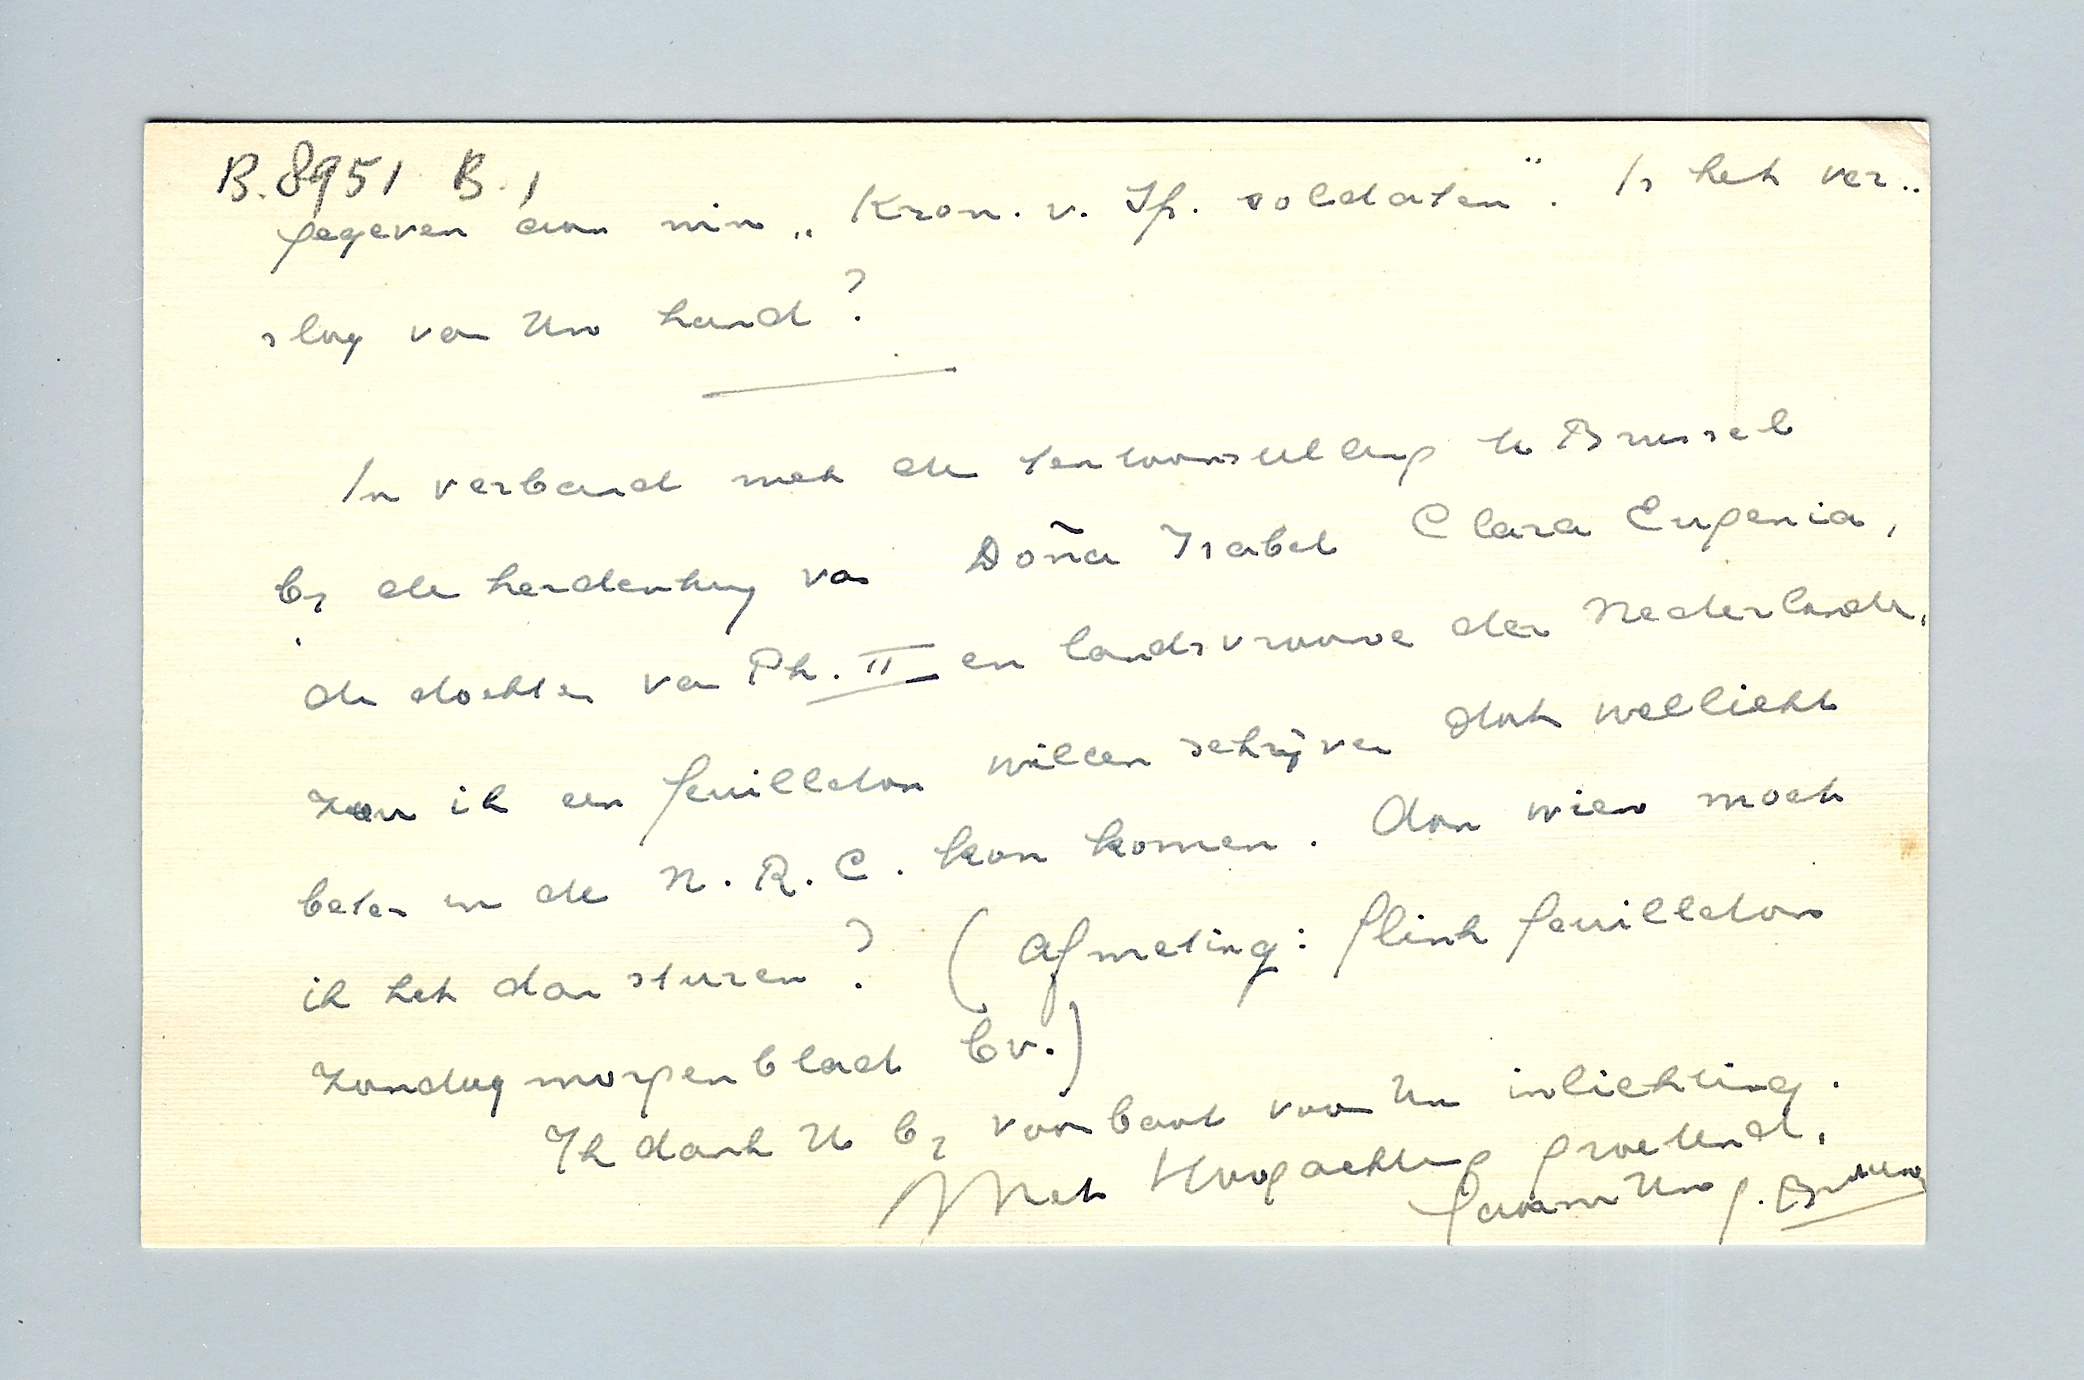 B. 8951 B. 1
gegeven aan mijn „Kron. v. Sp. soldaten". Is het ver-
slag van Uw hand?
In verband met de tentoonstelling te Brussel
bij de herdenking van Doña Isabel Clara Eugenia,
de dochter van Ph. II en landsvrouwe der Nederlanden,
zou ik een feuilleton willen schrijven dat wellicht
beter in de N. R. C. kon komen. Aan wien moet
ik het dan sturen? (Afmeting: flink feuilleton
Zondagmorgenblad bv.)
Ik dank U bij voorbaat voor Uw inlichting.
Met Hoogachting groetend,
gaarne Uw J. Brouwer